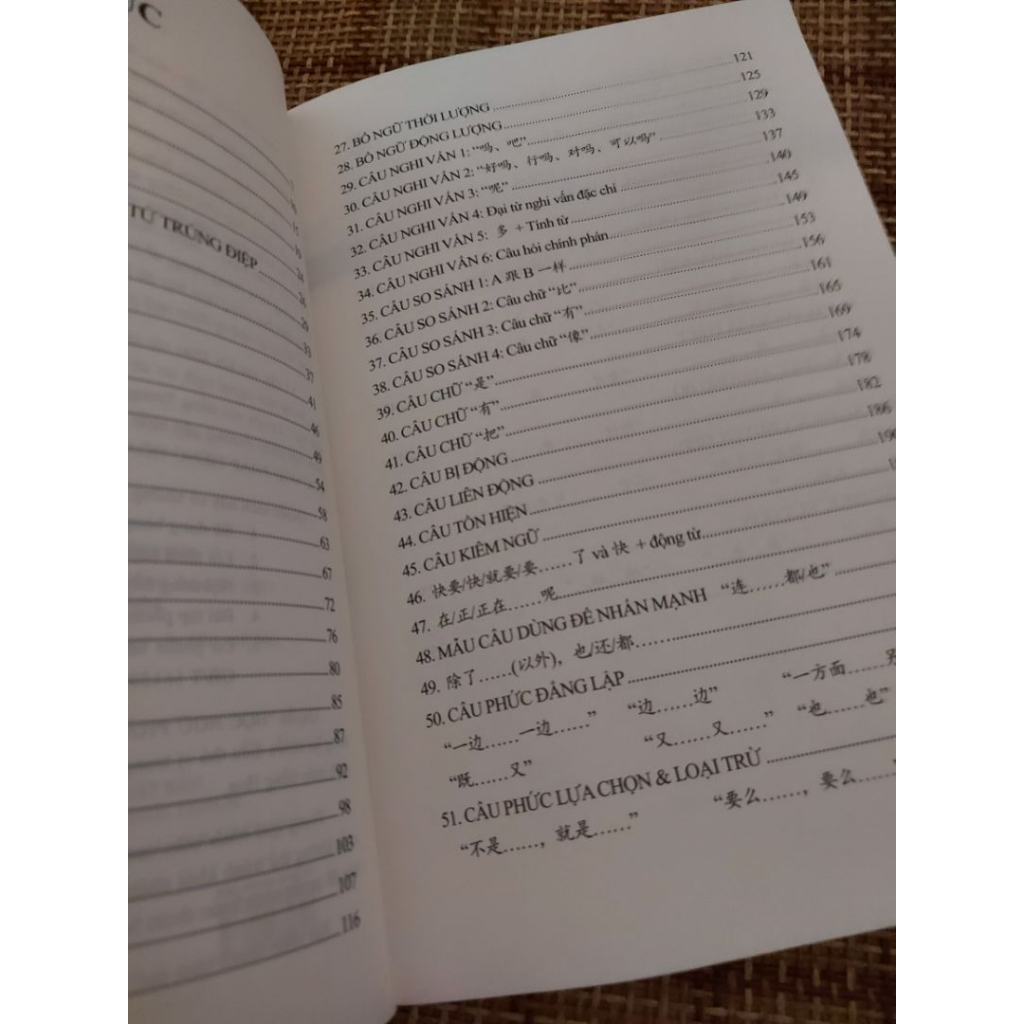 ỤC
TỪ TRÙNG ĐIỆP
24
26
29
33
37
41
46
49
54
58
63
67
72
76
80
85
87
92
98
103
107
116
27. BỔ NGỮ THỜI LƯỢNG 121
28. BỔ NGỮ ĐỘNG LƯỢNG 125
29. CÂU NGHI VẤN 1: “吗、吧” 129
30. CÂU NGHI VẤN 2: “好吗、行吗、对吗、可以吗” 133
31. CÂU NGHI VẤN 3: “呢” 137
32. CÂU NGHI VẤN 4: Đại từ nghi vấn đặc chỉ 140
33. CÂU NGHI VẤN 5: 多 + Tính từ 145
34. CÂU NGHI VẤN 6: Câu hỏi chính phản 149
35. CÂU SO SÁNH 1: A 跟 B 一样 153
36. CÂU SO SÁNH 2: Câu chữ “比” 156
37. CÂU SO SÁNH 3: Câu chữ “有” 161
38. CÂU SO SÁNH 4: Câu chữ “像” 165
39. CÂU CHỮ “是” 169
40. CÂU CHỮ “有” 174
41. CÂU CHỮ “把” 178
42. CÂU BỊ ĐỘNG 182
43. CÂU LIÊN ĐỘNG 186
44. CÂU TỒN HIỆN 190
45. CÂU KIÊM NGỮ
46. 快要/快/就要/要……了 và 快 + động từ
47. 在/正/正在……呢
48. MẪU CÂU DÙNG ĐỂ NHẤN MẠNH “连……都/也”
49. 除了……(以外)，也/还/都……
50. CÂU PHỨC ĐẲNG LẬP
“一边……一边……” “边……边” “一方面……另
“既……又” “又……又……” “也……也”
51. CÂU PHỨC LỰA CHỌN & LOẠI TRỪ
“不是……，就是……” “要么……，要么……”